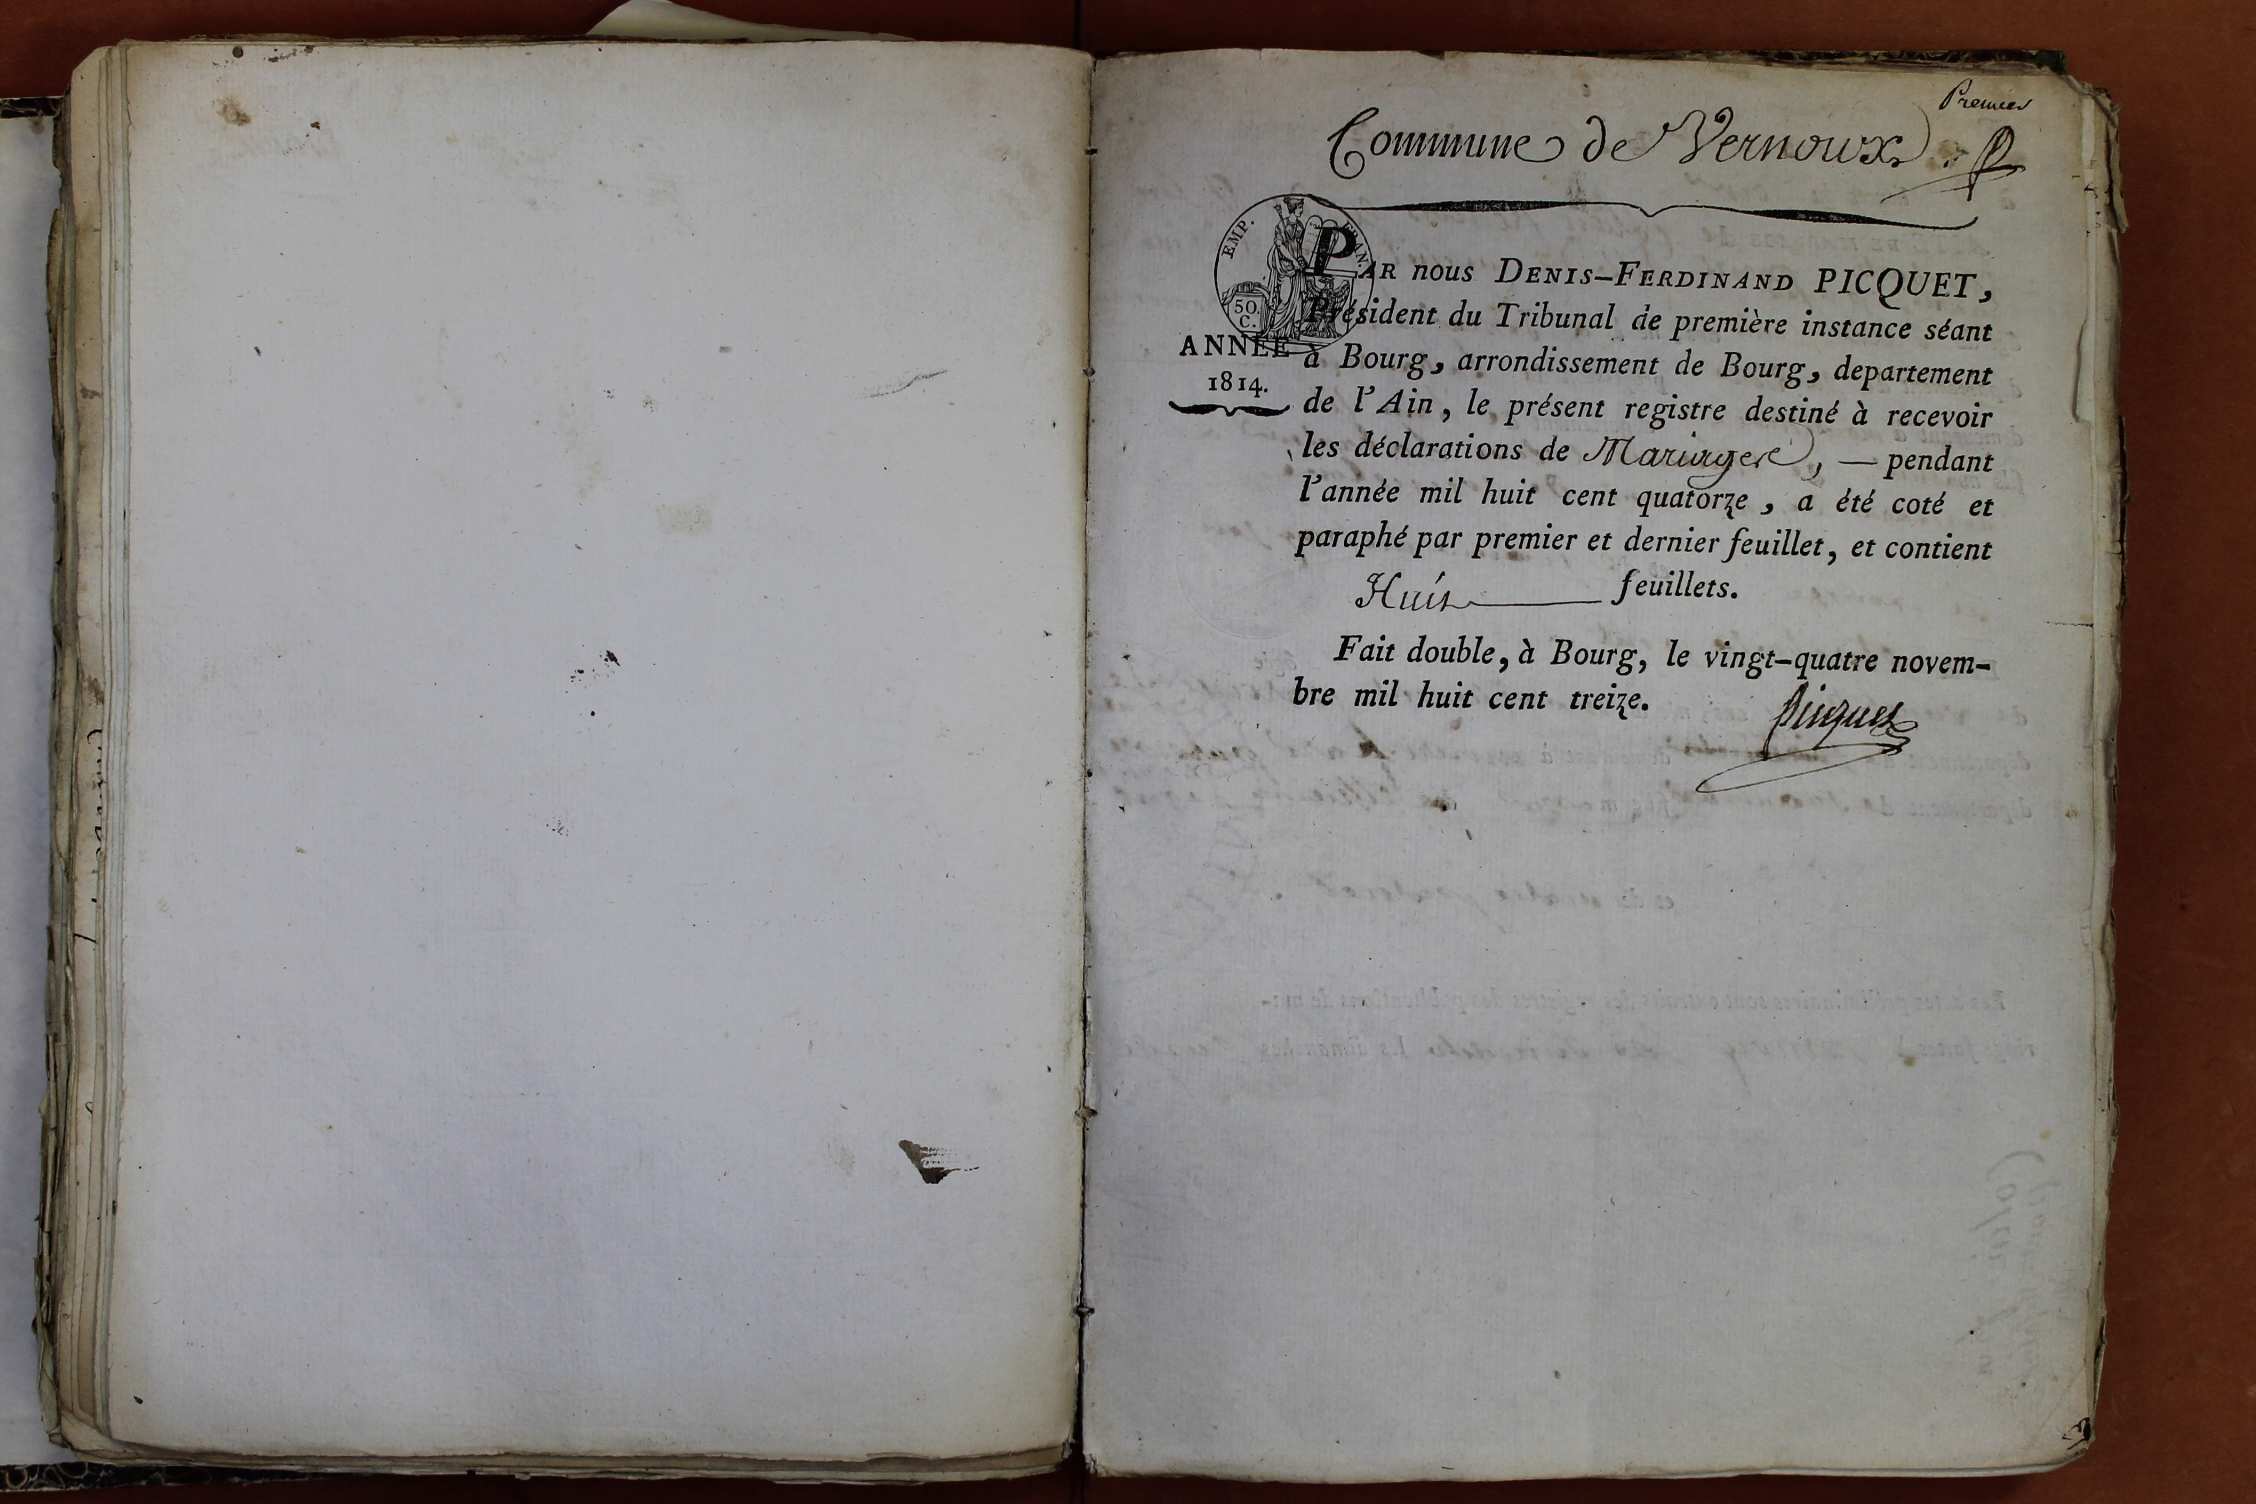 Premier
Commune de Vernoux
EMP. FRAN.
50.
C.
ANNÉE
1814.
PAR nous DENIS-FERDINAND PICQUET,
Président du Tribunal de première instance séant
à Bourg, arrondissement de Bourg, departement
de l'Ain, le présent registre destiné à recevoir
les déclarations de Mariages, — pendant
l'année mil huit cent quatorze, a été coté et
paraphé par premier et dernier feuillet, et contient
Huit feuillets.
Fait double, à Bourg, le vingt-quatre novem-
bre mil huit cent treize.
Picquet